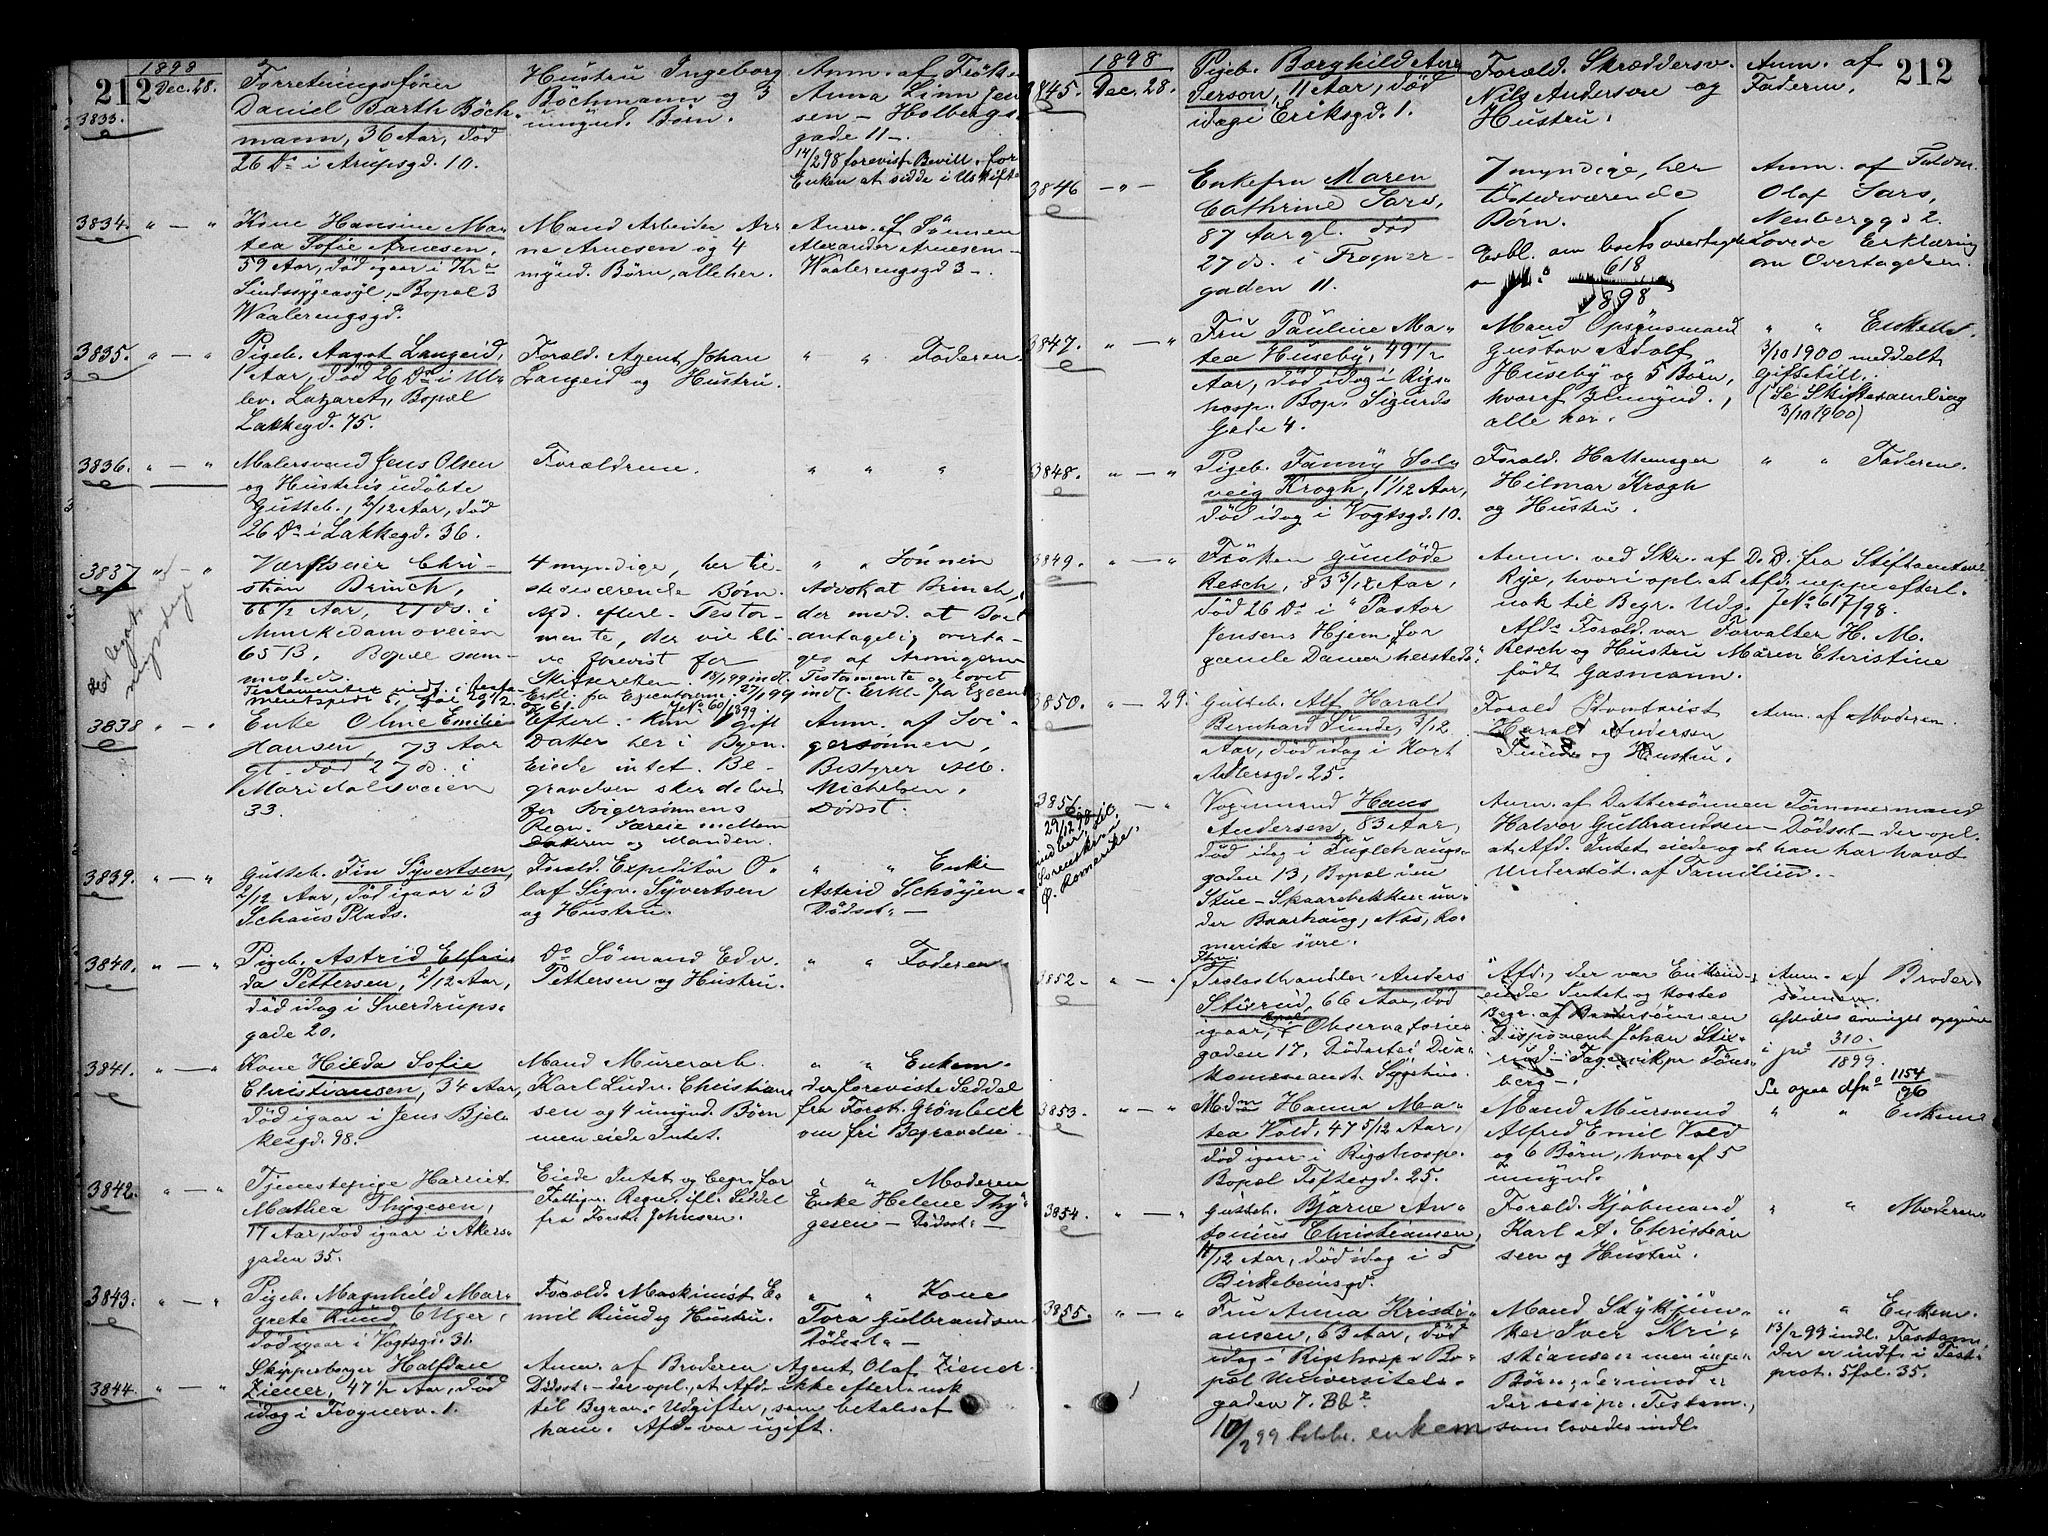 212
1898
Dec. 28.
3833.
Forretningsfører
Daniel Barth Böch-
mann, 36 Aar, död
26 Ds i Arupsgd. 10.
Hustru Ingeborg
Böchmann og 3
umynd. Börn.
Anm. af Frök.
Anna Linn Jen
sen - Holbergs
gade 11 -
14/2 98 forevist Bevill. for
Enken at sidde i Uskifte
3834. " — "
Kone Hansine Ma-
tea Sofie Arnesen,
59 Aar, död igaar i Kr.a
Sindssygeasyl, - Bopæl 3
Waalerengsgd.
Mand Arbeider Ar-
ne Arnesen og 4
mynd. Börn, alle her.
Anm. af Sönnen
Alexander Arnesen -
Waalerengsgd 3 -.
3835. " — "
Pigeb. Aagot Langeid,
1 Aar, död 26 Ds i Ul-
lev. Lazaret, Bopæl
Lakkegd. 75.
Foræld. Agent Johan
Langeid og Hustru.
" " Faderen.
3836. " — "
Malersvend Jens Olsen
og Hustrus udöbte
Gutteb., 2/12 Aar, död
26 Ds i Lakkegd. 36.
Forældrene.
" " "
3837 " — "
Værftseier Chri-
stian Brinch,
66 1/2 Aar, 27 ds. i
Munkedamsveien
65 B, Bopæl sam-
mesteds.
4 myndige, her ti-
stedeværende Börn.
Afd. efterl. Testa-
mente, der vil bli-
ve forevist for
Skifteretten.
" " Sönnen
Advokat Brinch,
der med. at Boet
antagelig overta-
ges af Arvingerne
3838 " — "
Enke Oline Emilie
Hansen, 73 Aar
gl. död 27 ds. i
Maridalsveien
33.
Efterl. kun 1 gift
Datter her i Byen.
Eiede intet. Be-
gravelsen sker delvis
for Svigersönnens
Regn. Særeie mellem
Datteren og Manden.
Anm. af Svi-
gersönnen,
Bestyrer Alb.
Michelsen,
Dödsst.
3839. " — "
Gutteb. Fin Syvertsen,
2/12 Aar, död igaar i 3
Schous Plads.
Foræld. Expeditör O-
laf Sigv. Syvertsen
og Hustru.
" " Enke
Astrid Schöyen -
Dödsst. -
3840. " — "
Pigeb. Astrid Elfri-
da Pettersen, 2/12 Aar,
död idag i Sverdrups-
gade 20.
Do Sömand Edv.
Pettersen og Hustru.
" " Faderen.
3841. " — "
Kone Hilda Sofie
Christiansen, 34 Aar,
död igaar i Jens Bjel-
kesgd. 98.
Mand Murerarb.
Karl Ludv. Christian-
sen og 4 umynd. Börn
men eiede Intet.
" " Enkem.
der foreviste Seddel
fra Forst. Grönbeck
om fri Begravelse -
3842. " — "
Tjenestepige Harriet
Mathea Thygesen,
17 Aar, död igaar i Akers-
gaden 35.
Eiede Intet og begr. for
Fattigv. Regn. ifl. Seddel
fra Forst. Johnsen.
" " Moderen
Enke Helene Thy-
gesen - Dödsst. -
3843. " — "
Pigeb. Magnhild Mar-
grete Ruud, 6 Uger,
död igaar i Vogtsgd. 31.
Foræld. Maskinist E-
mil Ruud og Hustru.
" " Kone
Tora Gulbrandsen
Dödsst. -
3844. " — "
Skipperborger Halfdan
Ziener, 47 1/2 Aar, död
idag i Frognerv. 1.
Anm. af Broderen Agent Olaf Ziener -
Dödsst. - der opl. at Afd. ikke efterl. nok
til Begrav. Udgifter, som betales af
ham. Afd. var ugift.
212
1898
3845. Dec. 28.
Pigeb. Borghild An-
dersen, 11 Aar, död
idag i Eriksgd. 1.
Foræld. Skræddersv.
Nils Andersen og
Hustru.
Anm. af
Faderen.
3846 — " —
Enkefru Maren
Cathrine Sars,
87 Aar gl. död
27 ds. i Frogner-
gaden 11.
7 myndige, her
tilstedeværende
Börn.
618
1898
Anm. af Fuldm.
Olaf Sars,
Nenberggd 2.
Lovede Erklæring
om Overtagelsen.
3847. " — "
Fru Pauline Ma-
tea Huseby, 49 1/2
Aar, död idag i Rigs-
hosp. Bop. Sigurds
Gade 4.
Mand Opsynsmand
Gustav Adolf
Huseby og 5 Börn,
hvoraf 2 umynd.,
alle her.
" " Enkem.
3/10 1900 meddelt
Giftetill.
(Se Skiftesamling
3/10 1900)
3848. " — "
Pigeb. Fanny Sol-
veig Krogh, 1 1/12 Aar,
död idag i Vogtsgd. 10.
Foræld. Hattemager
Hilmar Krogh
og Hustru.
" " Faderen.
3849. " — "
Fröken Gunlöde
Resch, 83 3/12 Aar,
död 26 Ds i "Pastor
Jensens Hjem for
gamle Damer" hersteds.
Anm. ved Skr. af D. D. fra Stiftsamtm.
Rye, hvori opl. at Afd. neppe efterl.
nok til Begr. Udg. J No 617/98.
Afds Foræld. var Forvalter H. M.
Resch og Hustru Maren Christine
født Gasmann.
3850. " — 29.
Gutteb. Alf Harald
Bernhard Sunde, 3/12
Aar, död idag i Kort
Adlersgd. 25.
Foræld Kontorist
Harald Andersen
Sunde og Hustru.
Anm. af Moderen.
3851. " — "
29/12 98 til
Sorenskriv.
Ö. Romerike.
Vognmand Hans
Andersen, 83 Aar,
död idag i Fuglehaugs-
gaden 13, Bopæl
Stue - Skaarebekken un-
der Baarhaug, Næs, Ro-
merike övre.
Anm. af Dattersönnen Tömmermand
Halvor Gulbrandsen - Dödsst. - der opl.
at Afd. Intet eiede og at han har havt
Understöt. af Familien. -
3852. " — "
Trælasthandler Anders
Stixrud, 66 Aar, död
igaar, Bopæl Observatorie-
gaden 17. Dödssted Dia-
konisseanst. Sygehus.
Afd., der var Enkem.,
eiede Intet og kostes
Begr. af Brodersönnen
Disponent Johan Stix-
rud - Fagervik pr Töns-
berg -.
Anm. af Broder-
sönnen.
i jo 310
1899.
Se ogsaa dfno 1154
96
3853. " — "
Mdm Hanna Ma-
tea Vold, 47 5/12 Aar,
död igaar i Rigshosp.
Bopæl Toftesgd. 25.
Mand Mursvend
Alfred Emil Vold
og 6 Börn, hvoraf 5
umynd.
" " Enkem.
3854. " — "
Gutteb. Bjarne An-
tonius Christiansen,
4/12 Aar, död idag i 5
Birkebeinsgd.
Foræld. Kjöbmand
Karl A. Christian-
sen og Hustru.
" " Moderen
3855. " — "
Fru Anna Kristi-
ansen, 63 Aar, död
idag i Rigshosp. Bo-
pæl Universitets-
gaden 7. Bb2
10/2 99 bebr. enkem
Mand Stykjun-
ker Iver Kri-
stiansen men ingen
Börn,
som lovedes indl.
" " Enkem.
13/2 99 indl. Testam.
der er indf. i Test
prot. 5 fol. 35.